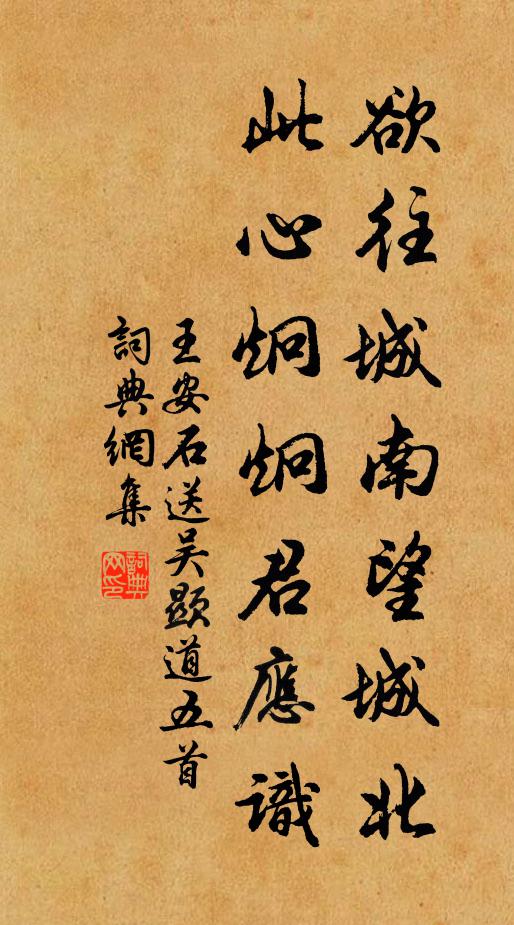 欲往城南望城北
此心炯炯君應識
王安石送吴顯道五首
詞典網集
詞典
网印